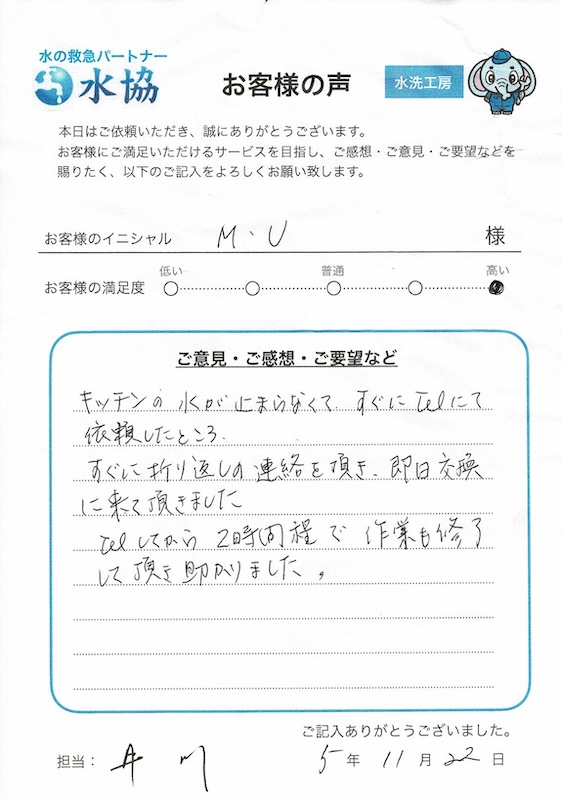 水の救急パートナー
水協 お客様の声 水洗工房
本日はご依頼いただき、誠にありがとうございます。
お客様にご満足いただけるサービスを目指し、ご感想・ご意見・ご要望などを
賜りたく、以下のご記入をよろしくお願い致します。
お客様のイニシャル M・U 様
低い 普通 高い
お客様の満足度
ご意見・ご感想・ご要望など
キッチンの水が止まらなくて すぐにtelにて
依頼したところ.
すぐに折り返しの連絡を頂き、即日交換
に来て頂きました
telしてから 2時間程で 作業も修了
して頂き助かりました。
ご記入ありがとうございました。
担当: 井川 5年 11月 22日